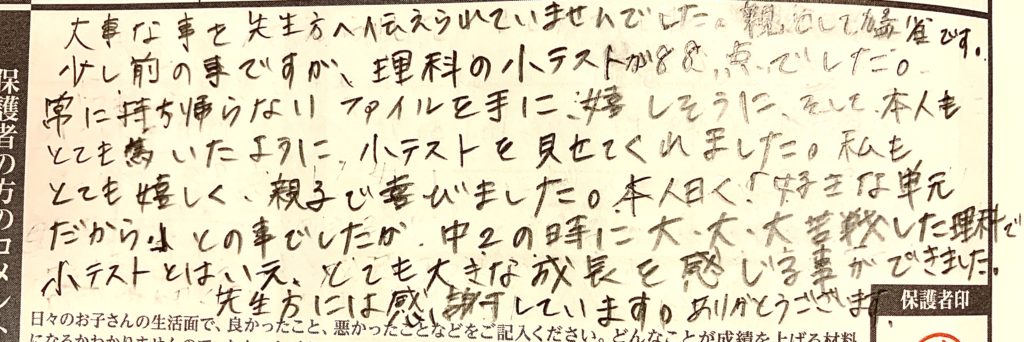 大事な事を先生方へ伝えられていませんでした。親として反省です。
少し前の事ですが、理科の小テストが88点でした。
常に持ち帰らないファイルを手に、嬉しそうに、そして本人も
とても驚いたように、小テストを見せてくれました。私も
とても嬉しく、親子で喜びました。本人曰く、「好きな単元
だから」との事でしたが、中2の時に大・大・大苦戦した理科で
小テストとはいえ、とても大きな成長を感じる事ができました。
先生方には感謝しています。ありがとうございます。
保護者の方のコメント
保護者印
日々のお子さんの生活面で、良かったこと、悪かったことなどをご記入ください。どんなことが成績を上げる材料
になるかわかりませんので